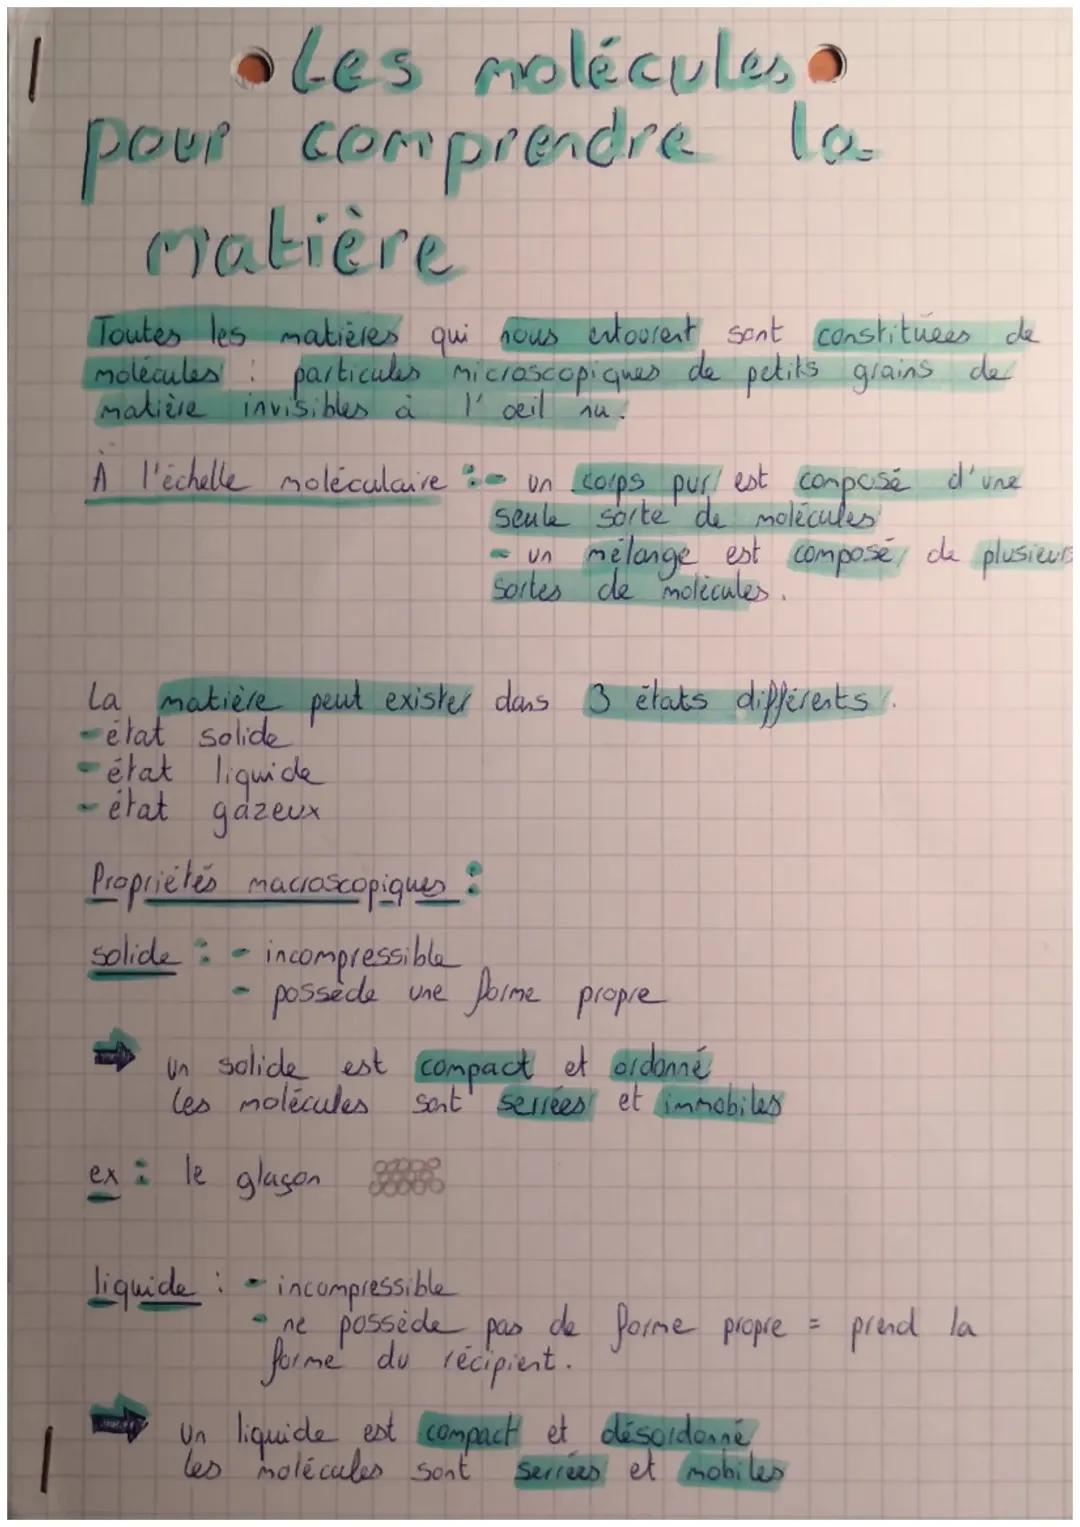 Les molécules
pour comprendre la
matière
Toutes les matières qui nous entourent sont constituées de
molécules : particules microscopiques de petits grains de
matière invisibles à l'oeil nu.
À l'échelle moléculaire : - un corps pur est composé d'une
seule sorte de molécules
- un mélange est composé de plusieurs
sortes de molécules.
La matière peut exister dans 3 états différents.
- état solide
- état liquide
- état gazeux
Propriétés macroscopiques :
solide : - incompressible
- possède une forme propre
➡ un solide est compact et ordonné
les molécules sont serrées et immobiles
ex : le glaçon
liquide : - incompressible
- ne possède pas de forme propre = prend la
forme du récipient.
➡ un liquide est compact et désordonné
les molécules sont serrées et mobiles